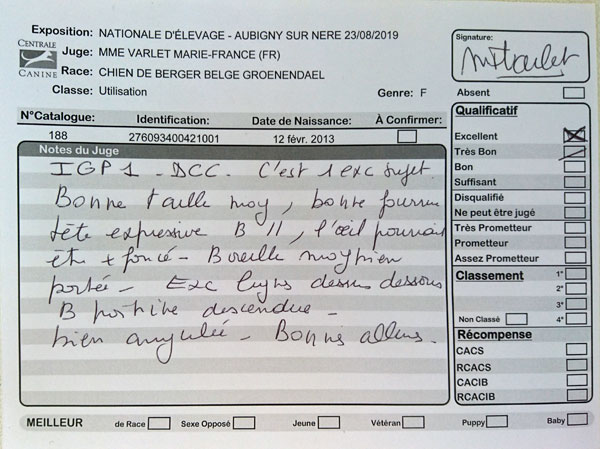 Exposition: NATIONALE D'ÉLEVAGE - AUBIGNY SUR NERE 23/08/2019
CENTRALE CANINE
Juge: MME VARLET MARIE-FRANCE (FR)
Race: CHIEN DE BERGER BELGE GROENENDAEL
Classe: Utilisation Genre: F
N°Catalogue: Identification: Date de Naissance: À Confirmer:
188 276093400421001 12 févr. 2013
Notes du Juge
IGP1 - DCC. C'est 1 exc sujet.
Bonne taille moy, bonne fourrure
tête expressive B //, l'œil pourrait
être + foncé - B oreille moy bien
portée - Exc lignes dessus dessous
B poitrine descendue -
bien angulée - Bonnes allures.
Signature:
Absent
Qualificatif
Excellent
Très Bon
Bon
Suffisant
Disqualifié
Ne peut être jugé
Très Prometteur
Prometteur
Assez Prometteur
Classement 1°
2°
3°
Non Classé 4°
Récompense
CACS
RCACS
CACIB
RCACIB
MEILLEUR de Race Sexe Opposé Jeune Vétéran Puppy Baby